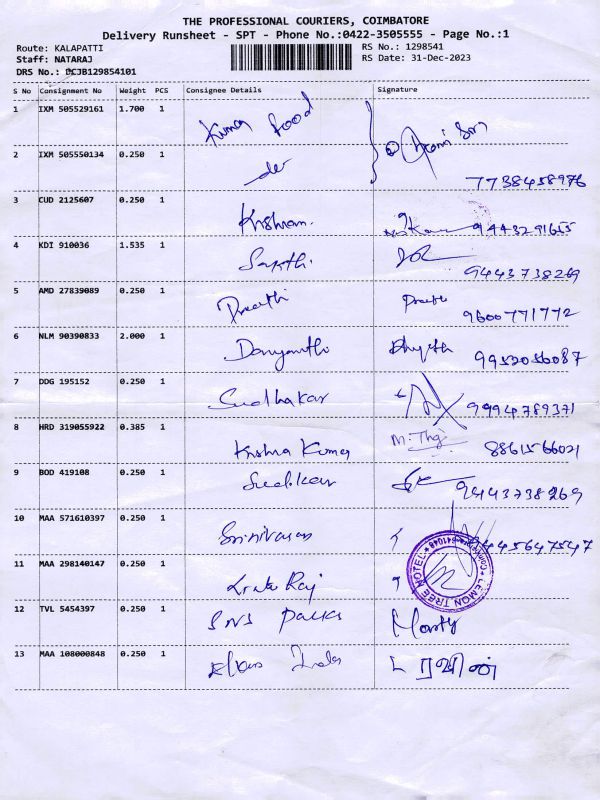 THE PROFESSIONAL COURIERS, COIMBATORE
Delivery Runsheet - SPT - Phone No.:0422-3505555 - Page No.:1
Route: KALAPATTI
RS No.: 1298541
Staff: NATARAJ
RS Date: 31-Dec-2023
DRS No.: DCJB129854101
S No Consignment No Weight PCS Consignee Details Signature
1 IXM 505529161 1.700 1 Kumar Food
2 IXM 505550134 0.250 1 do 7738458976
3 CUD 2125607 0.250 1 Krishnan. 9443291655
4 KDI 910036 1.535 1 Sakthi 9443738269
5 AMD 27839089 0.250 1 Preethi Preethi 9600771772
6 NLM 90390833 2.000 1 9952056087
7 DDG 195152 0.250 1 Sudhakar 9994789371
8 HRD 319055922 0.385 1 Krishna Kumar 8861566021
9 BOD 419108 0.250 1 Sudikar 9443738269
10 MAA 571610397 0.250 1 Srinivasan 9445647547
11 MAA 298140147 0.250 1 Raj
LEMON TREE HOTEL
12 TVL 5454397 0.250 1 SNS
13 MAA 108000848 0.250 1